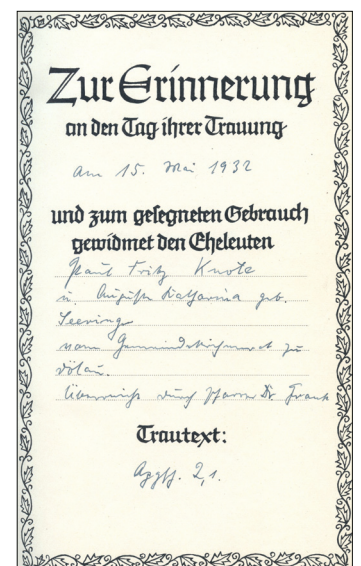 Zur Erinnerung
an den Tag ihrer Trauung
am 15. Mai 1932
und zum gesegneten Gebrauch
gewidmet den Eheleuten
Paul Fritz Knote
u. Auguste Katharina geb.
Seeringer
vom Gemeindekirchenrat zu
Dölau.
Überreicht durch Pfarrer Dr. Frank
Trautext:
2,1.